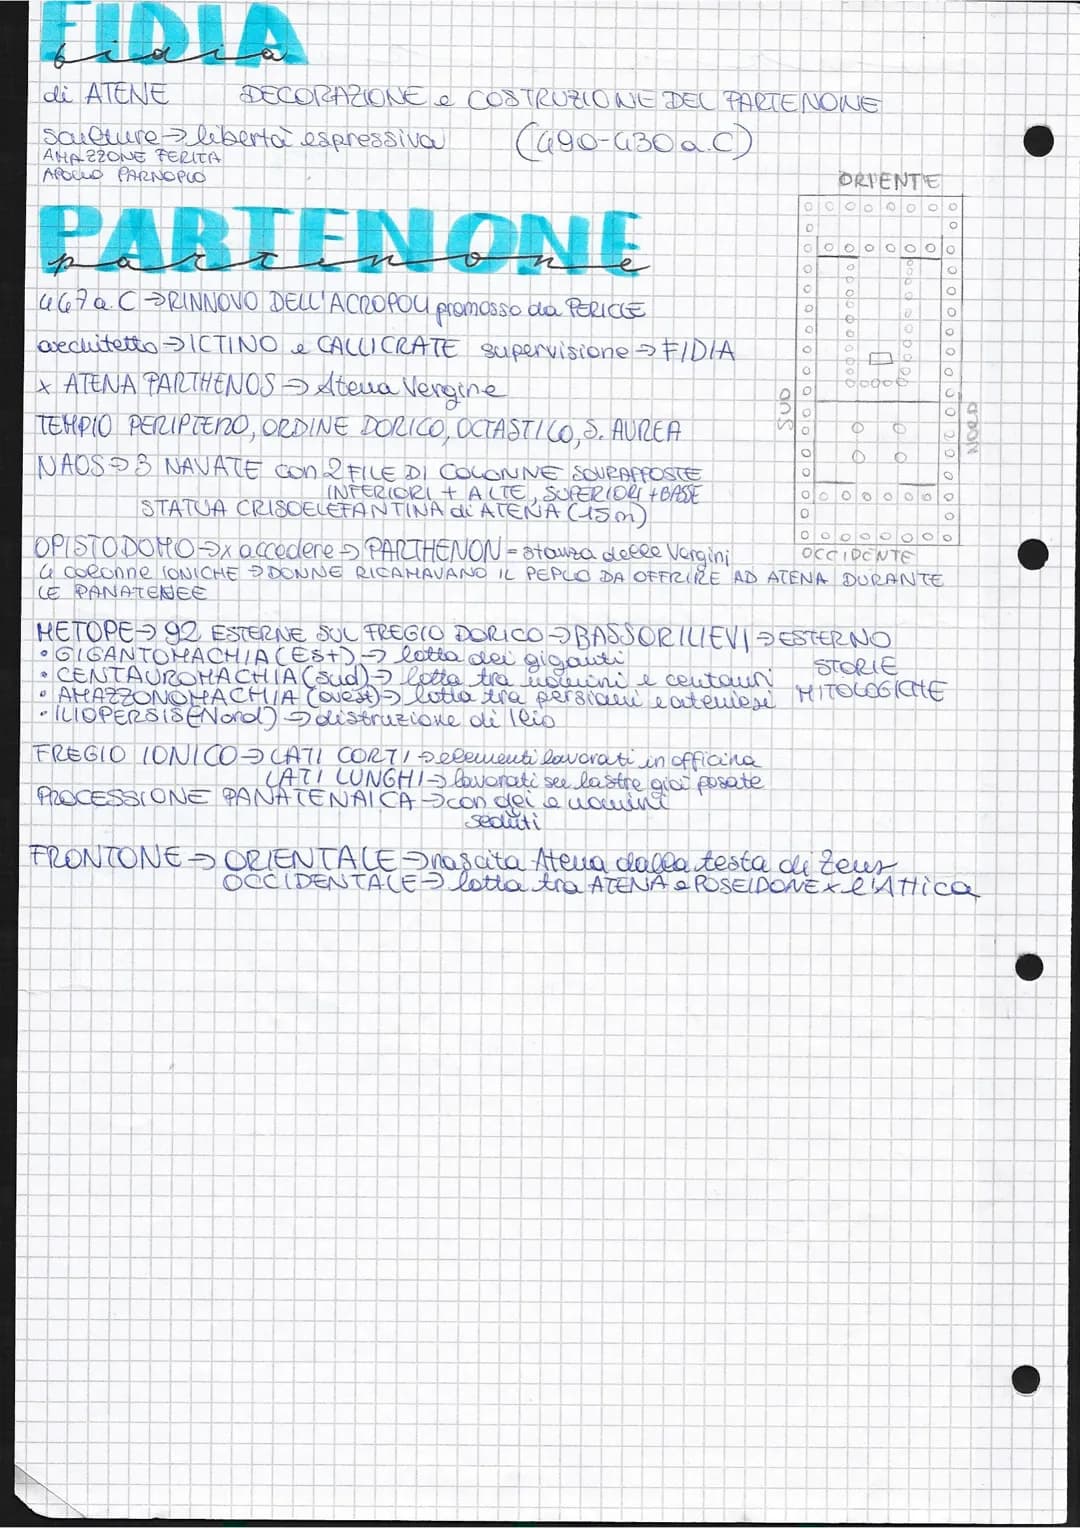 FIDIA
fidia
di ATENE DECORAZIONE e COSTRUZIONE DEL PARTENONE
sculture → libertà espressiva (490-430 a.C)
AMAZZONE FERITA
APOLLO PARNOPIO
ORIENTE
PARTENONE
partenone
447 a.C → RINNOVO DELL'ACROPOLI promosso da PERICLE
architetto → ICTINO e CALLICRATE supervisione → FIDIA
x ATENA PARTHENOS → Atena Vergine
TEMPIO PERIPTERO, ORDINE DORICO, OCTASTILO, S. AUREA
SUD
NORD
NAOS → 3 NAVATE con 2 FILE DI COLONNE SOVRAPPOSTE
INFERIORI + ALTE, SUPERIORI + BASSE
STATUA CRISOELEFANTINA di ATENA (15m)
OPISTODOMO → x accedere → PARTHENON = stanza delle Vergini
OCCIDENTE
4 colonne IONICHE → DONNE RICAMAVANO IL PEPLO DA OFFRIRE AD ATENA DURANTE
LE PANATENEE
METOPE → 92 ESTERNE SUL FREGIO DORICO → BASSORILIEVI → ESTERNO
• GIGANTOMACHIA (EST) → lotta dei giganti STORIE
• CENTAUROMACHIA (sud) → lotta tra uomini e centauri MITOLOGICHE
• AMAZZONOMACHIA (ovest) → lotta tra persiani e ateniesi
• ILIOPERSIS (Nord) → distruzione di Ilio
FREGIO IONICO → LATI CORTI → elementi lavorati in officina
LATI LUNGHI → lavorati su lastre già posate
PROCESSIONE PANATENAICA → con dei e uomini
seduti
FRONTONE → ORIENTALE → nascita Atena dalla testa di Zeus
OCCIDENTALE → lotta tra ATENA e POSEIDONE x l'Attica